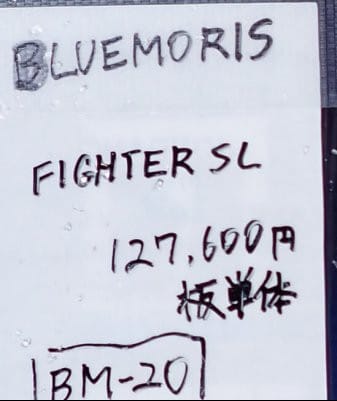 BLUEMORIS
FIGHTER SL
127,600円
板単体
BM-20